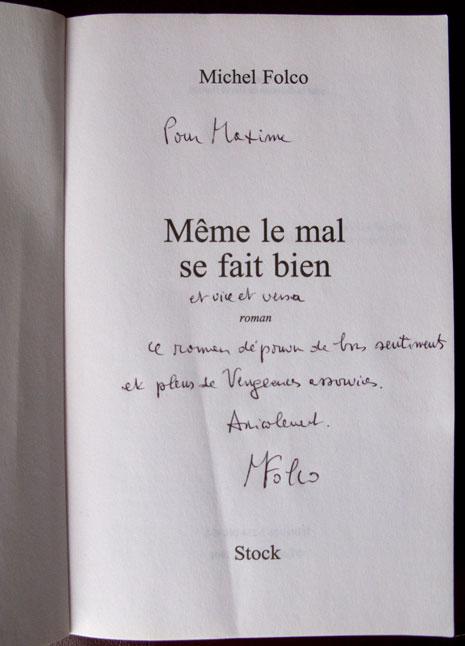 Michel Folco
Pour Maxime
Même le mal
se fait bien
et vice et versa
roman
ce roman dépourvu de bons sentiments
et pleins de Vengeances assouvies.
Amicalement.
MFolco
Stock